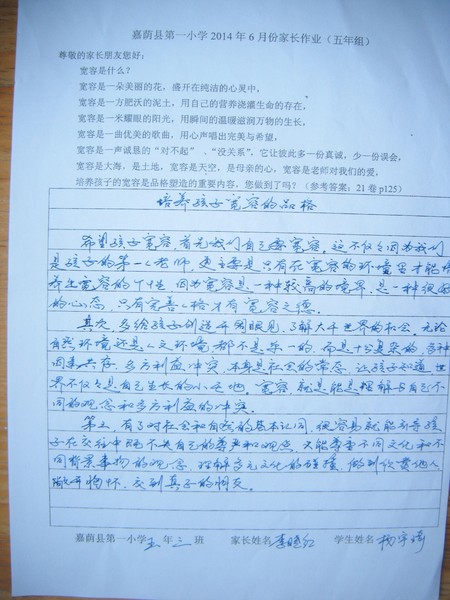 嘉荫县第一小学 2014 年 6 月份家长作业（五年组）
尊敬的家长朋友您好：
宽容是什么？
宽容是一朵美丽的花，盛开在纯洁的心灵中，
宽容是一方肥沃的泥土，用自己的营养浇灌生命的存在，
宽容是一米耀眼的阳光，用瞬间的温暖滋润万物的生长，
宽容是一曲优美的歌曲，用心声唱出完美与希望，
宽容是一声诚恳的“对不起”、“没关系”，它让彼此多一份真诚，少一份误会，
宽容是大海，是土地，宽容是天空，是母亲的心，宽容是老师对我们的爱，
培养孩子的宽容是品格塑造的重要内容，您做到了吗？（参考答案：21 卷 p125）
培养孩子宽容的品格
希望孩子宽容，首先我们自己要宽容，这不仅仅因为我们
是孩子的第一任老师，更主要是只有在宽容的环境里才能培
养出宽容的个性，因为宽容是一种较高的境界，是一种很好
的心态，只有完善人格才有宽容之德。
其次，多给孩子创造开阔眼见，了解大千世界的机会，无论
自然环境还是人文环境，都不是单一的，而是十分复杂的，多种
因素共存，多方利益冲突，本身是社会的常态，让孩子知道，世
界不仅仅是自己生长的小天地。宽容，就是能够理解与自己不
同的观念和多方利益的冲突。
第三，有了对社会和自然的基本认同，很容易就能引导孩
子在交往中既不失自己的尊严和观点，又能尊重不同文化和不
同背景事物的观念，理解多元文化的碰撞，做到欣赏他人
敞开胸怀，交到真正的朋友。
嘉荫县第一小学 五 年 三 班 家长姓名 李晓红 学生姓名 杨宇琦